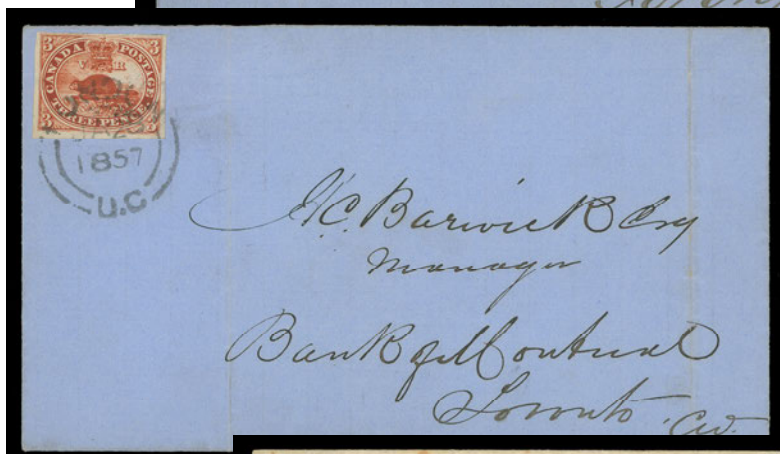 3 CANADA POSTAGE 3
V R
3 THREE PENCE 3
1857
U.C
Barwick Esq
Manager
Bank of Montreal
Toronto CW.